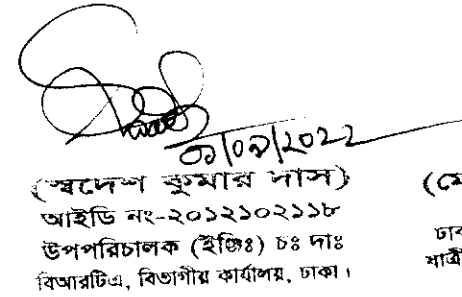 ০১/০৯/২০২২
(স্বদেশ কুমার দাস) (মো
আইডি নং-২০১২১০২১১৮
উপপরিচালক (ইঞ্জিঃ) চঃ দাঃ ঢাক
বিআরটিএ, বিভাগীয় কার্যালয়, ঢাকা। যাত্রী